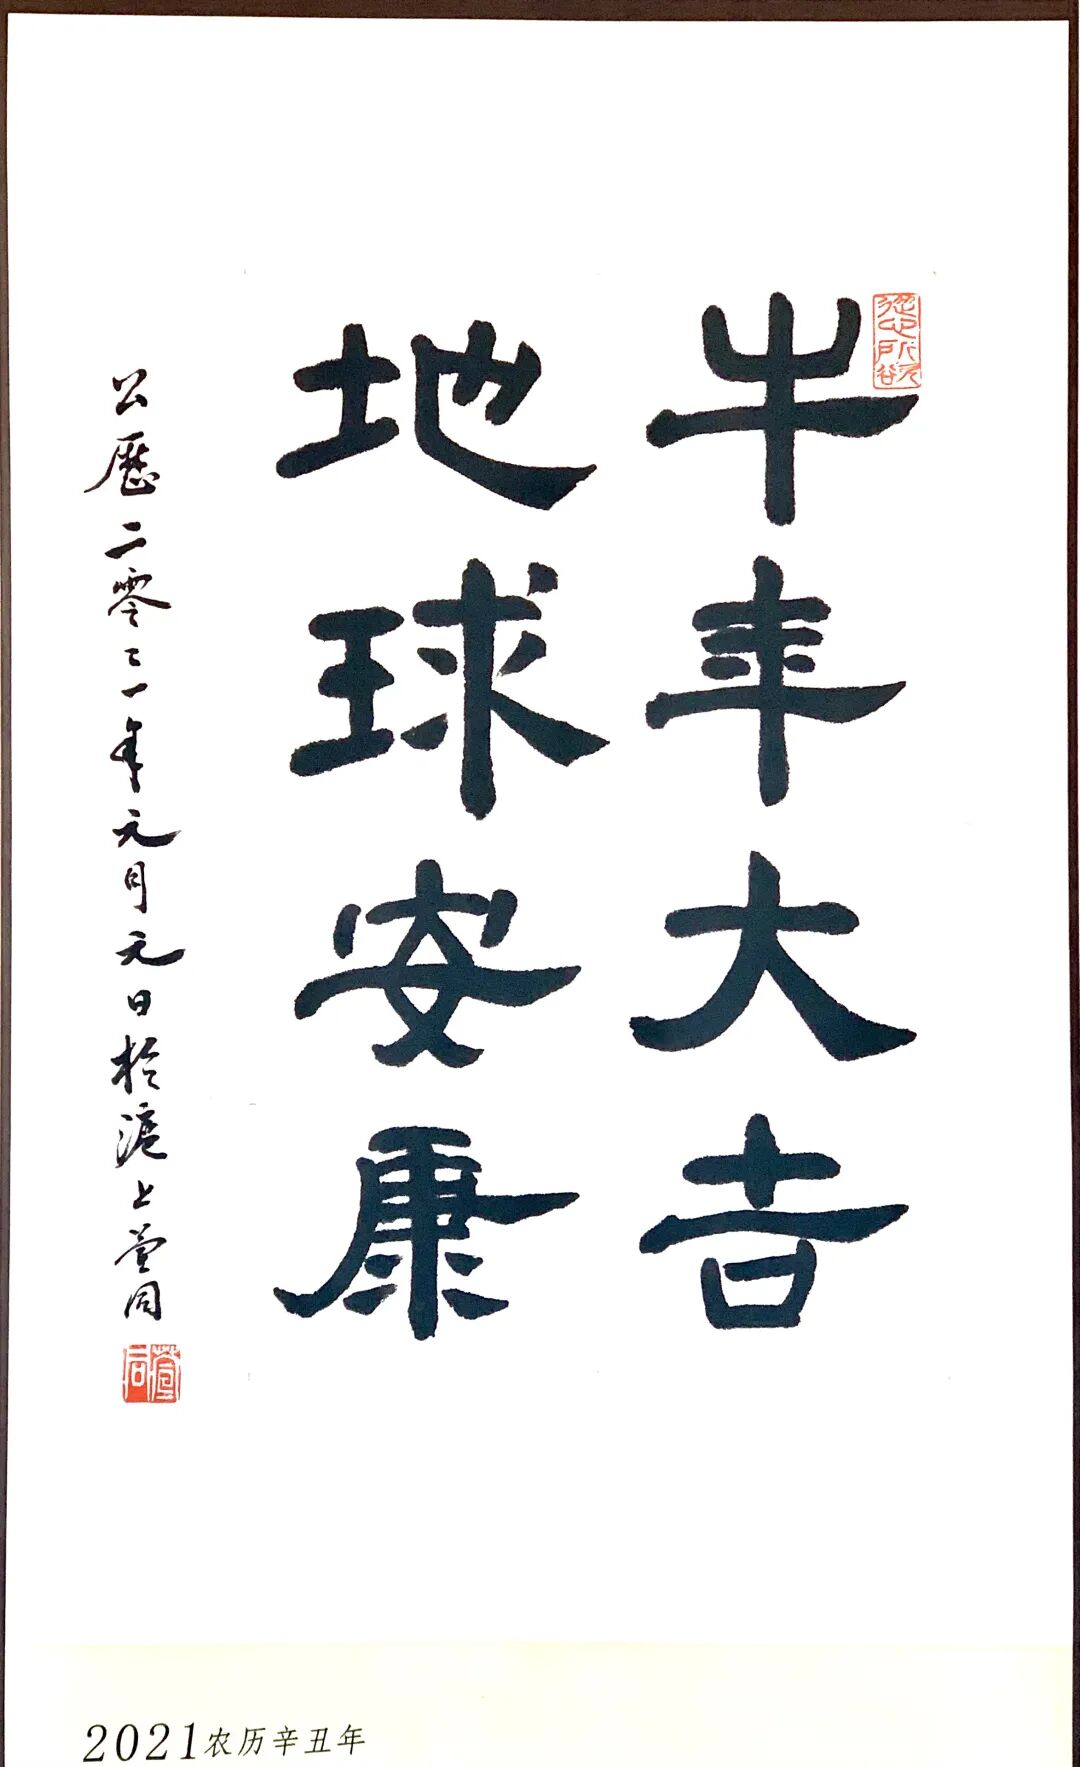 從心所欲
牛年大吉
地球安康
公歷二零二一年元月元日於滬上萱同
2021农历辛丑年